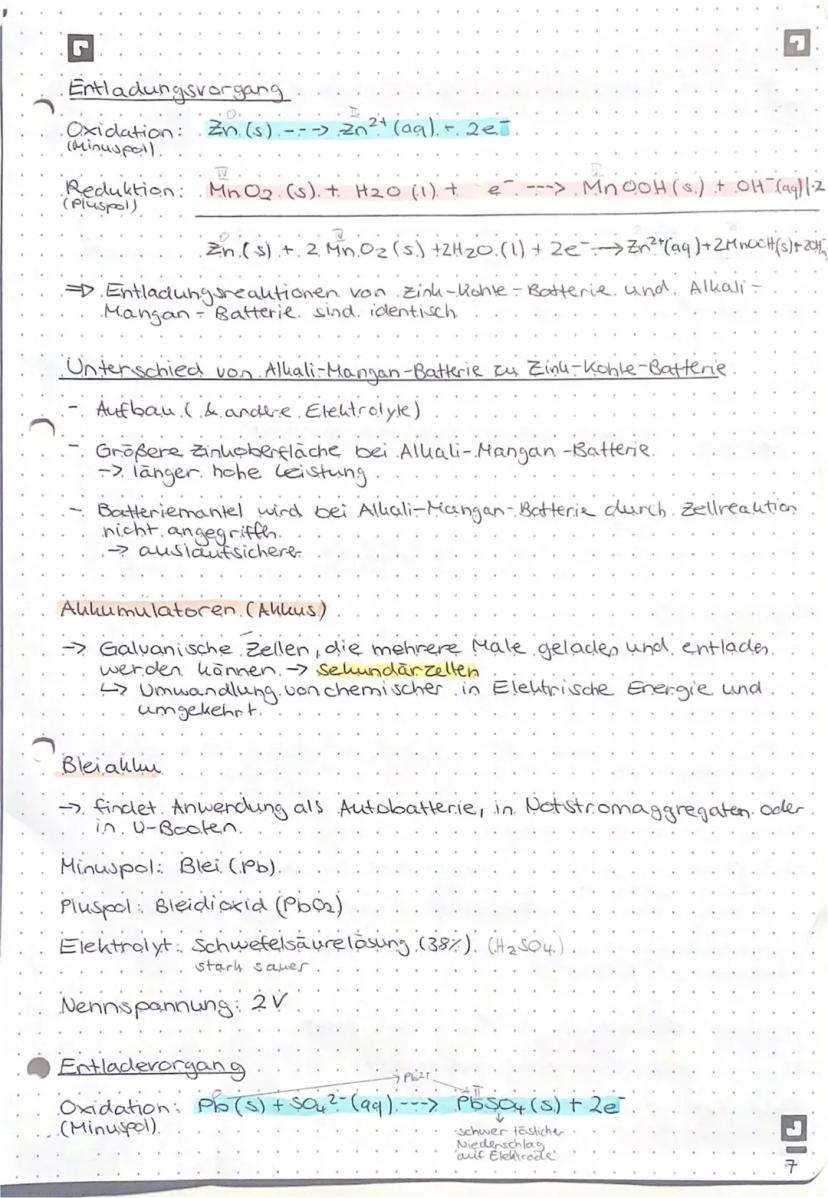 Entladungsvorgang
0 II
Oxidation: Zn (s) ---> Zn²⁺ (aq) + 2e⁻
(Minuspol)
IV
Reduktion: MnO2 (s) + H2O (l) + e⁻ ---> MnOOH (s) + OH⁻ (aq) |·2
(Pluspol)
0 IV
Zn (s) + 2 MnO2 (s) + 2H2O (l) + 2e⁻ → Zn²⁺(aq) + 2MnOOH(s) + 2OH⁻
=> Entladungsreaktionen von Zink-Kohle-Batterie und Alkali-
Mangan-Batterie sind identisch
Unterschied von Alkali-Mangan-Batterie zu Zink-Kohle-Batterie
- Aufbau (& andere Elektrolyte)
- Größere Zinkoberfläche bei Alkali-Mangan-Batterie
-> länger hohe Leistung
- Batteriemantel wird bei Alkali-Mangan-Batterie durch Zellreaktion
nicht angegriffen
-> auslaufsicherer
Akkumulatoren (Akkus)
-> Galvanische Zellen, die mehrere Male geladen und entladen
werden können -> Sekundärzellen
↳ Umwandlung von chemischer in Elektrische Energie und
umgekehrt
Bleiakku
-> findet Anwendung als Autobatterie, in Notstromaggregaten oder
in U-Booten
Minuspol: Blei (Pb)
Pluspol: Bleidioxid (PbO2)
Elektrolyt: Schwefelsäurelösung (38%) (H2SO4)
stark sauer
Nennspannung: 2V
Entladevorgang
-> Pb²⁺
0 II
Oxidation: Pb (s) + SO4²⁻ (aq) ---> PbSO4 (s) + 2e⁻
(Minuspol)
↓
schwer löslicher
Niederschlag
auf Elektrode
7